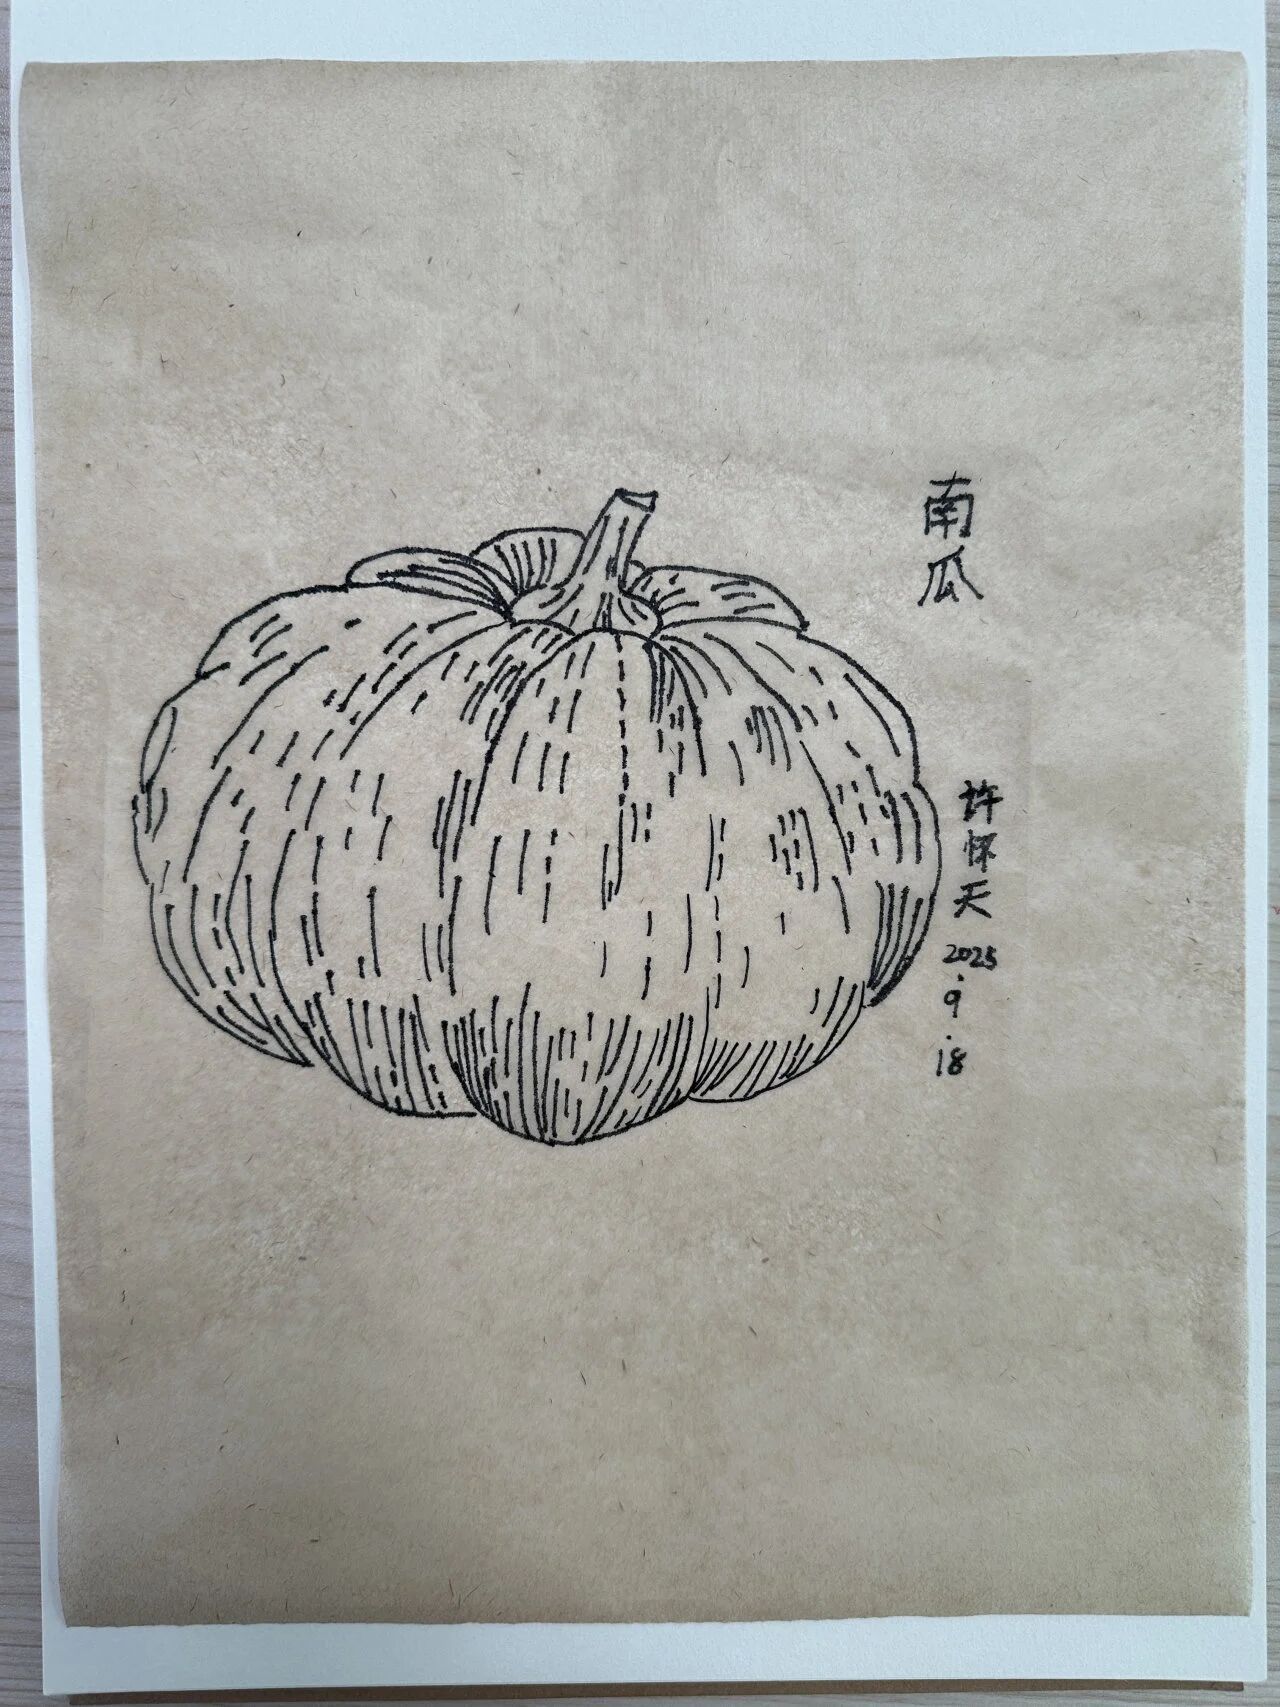 南瓜
许怀天
2025.9.18